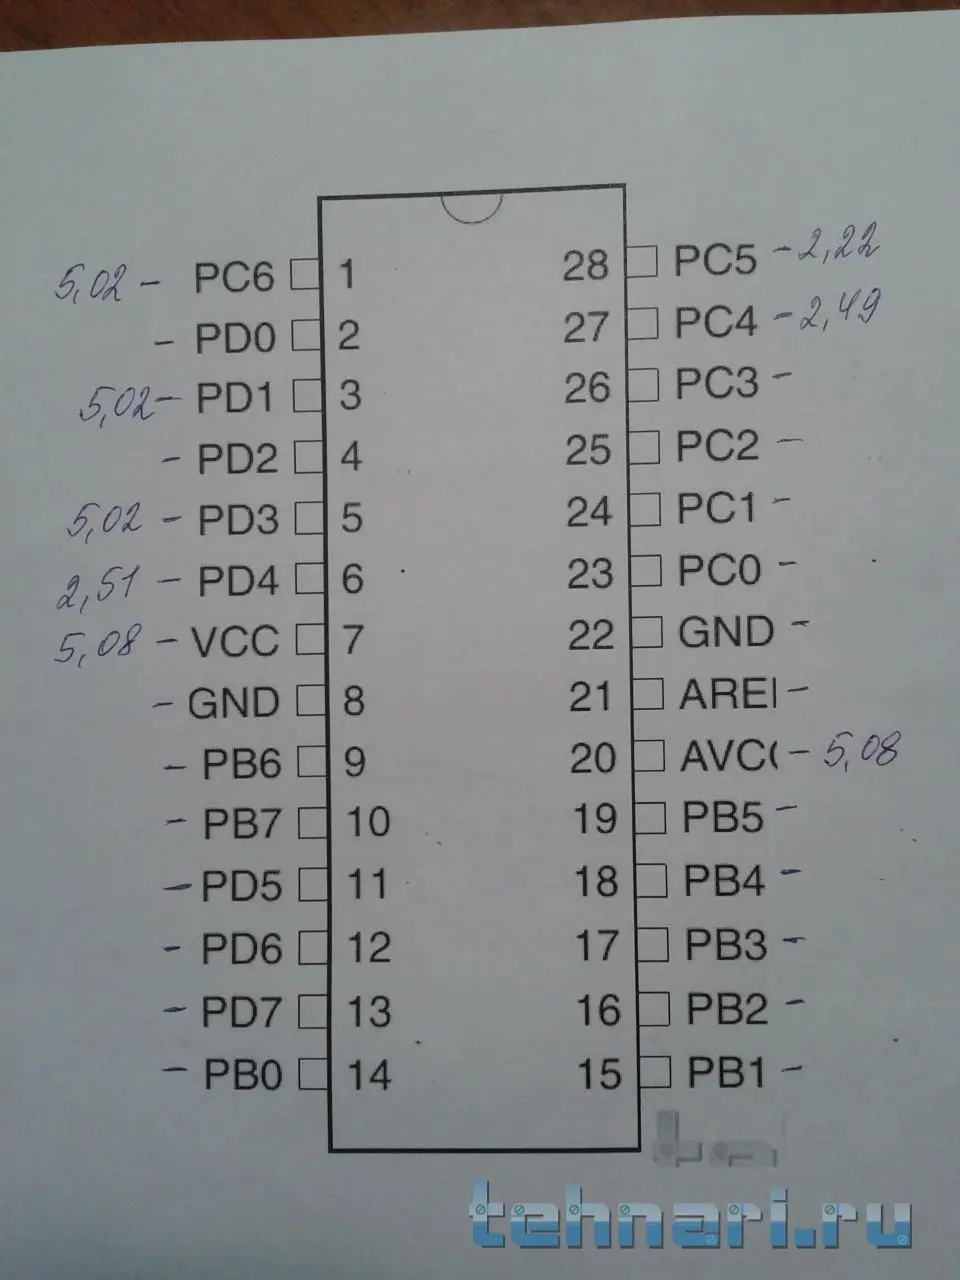 5,02 – PC6 1 28 PC5 – 2,22
– PD0 2 27 PC4 – 2,49
5,02 – PD1 3 26 PC3 –
– PD2 4 25 PC2 –
5,02 – PD3 5 24 PC1 –
2,51 – PD4 6 23 PC0 –
5,08 – VCC 7 22 GND –
– GND 8 21 AREI –
– PB6 9 20 AVC( – 5,08
– PB7 10 19 PB5 –
– PD5 11 18 PB4 –
– PD6 12 17 PB3 –
– PD7 13 16 PB2 –
– PB0 14 15 PB1 –
tehnari.ru